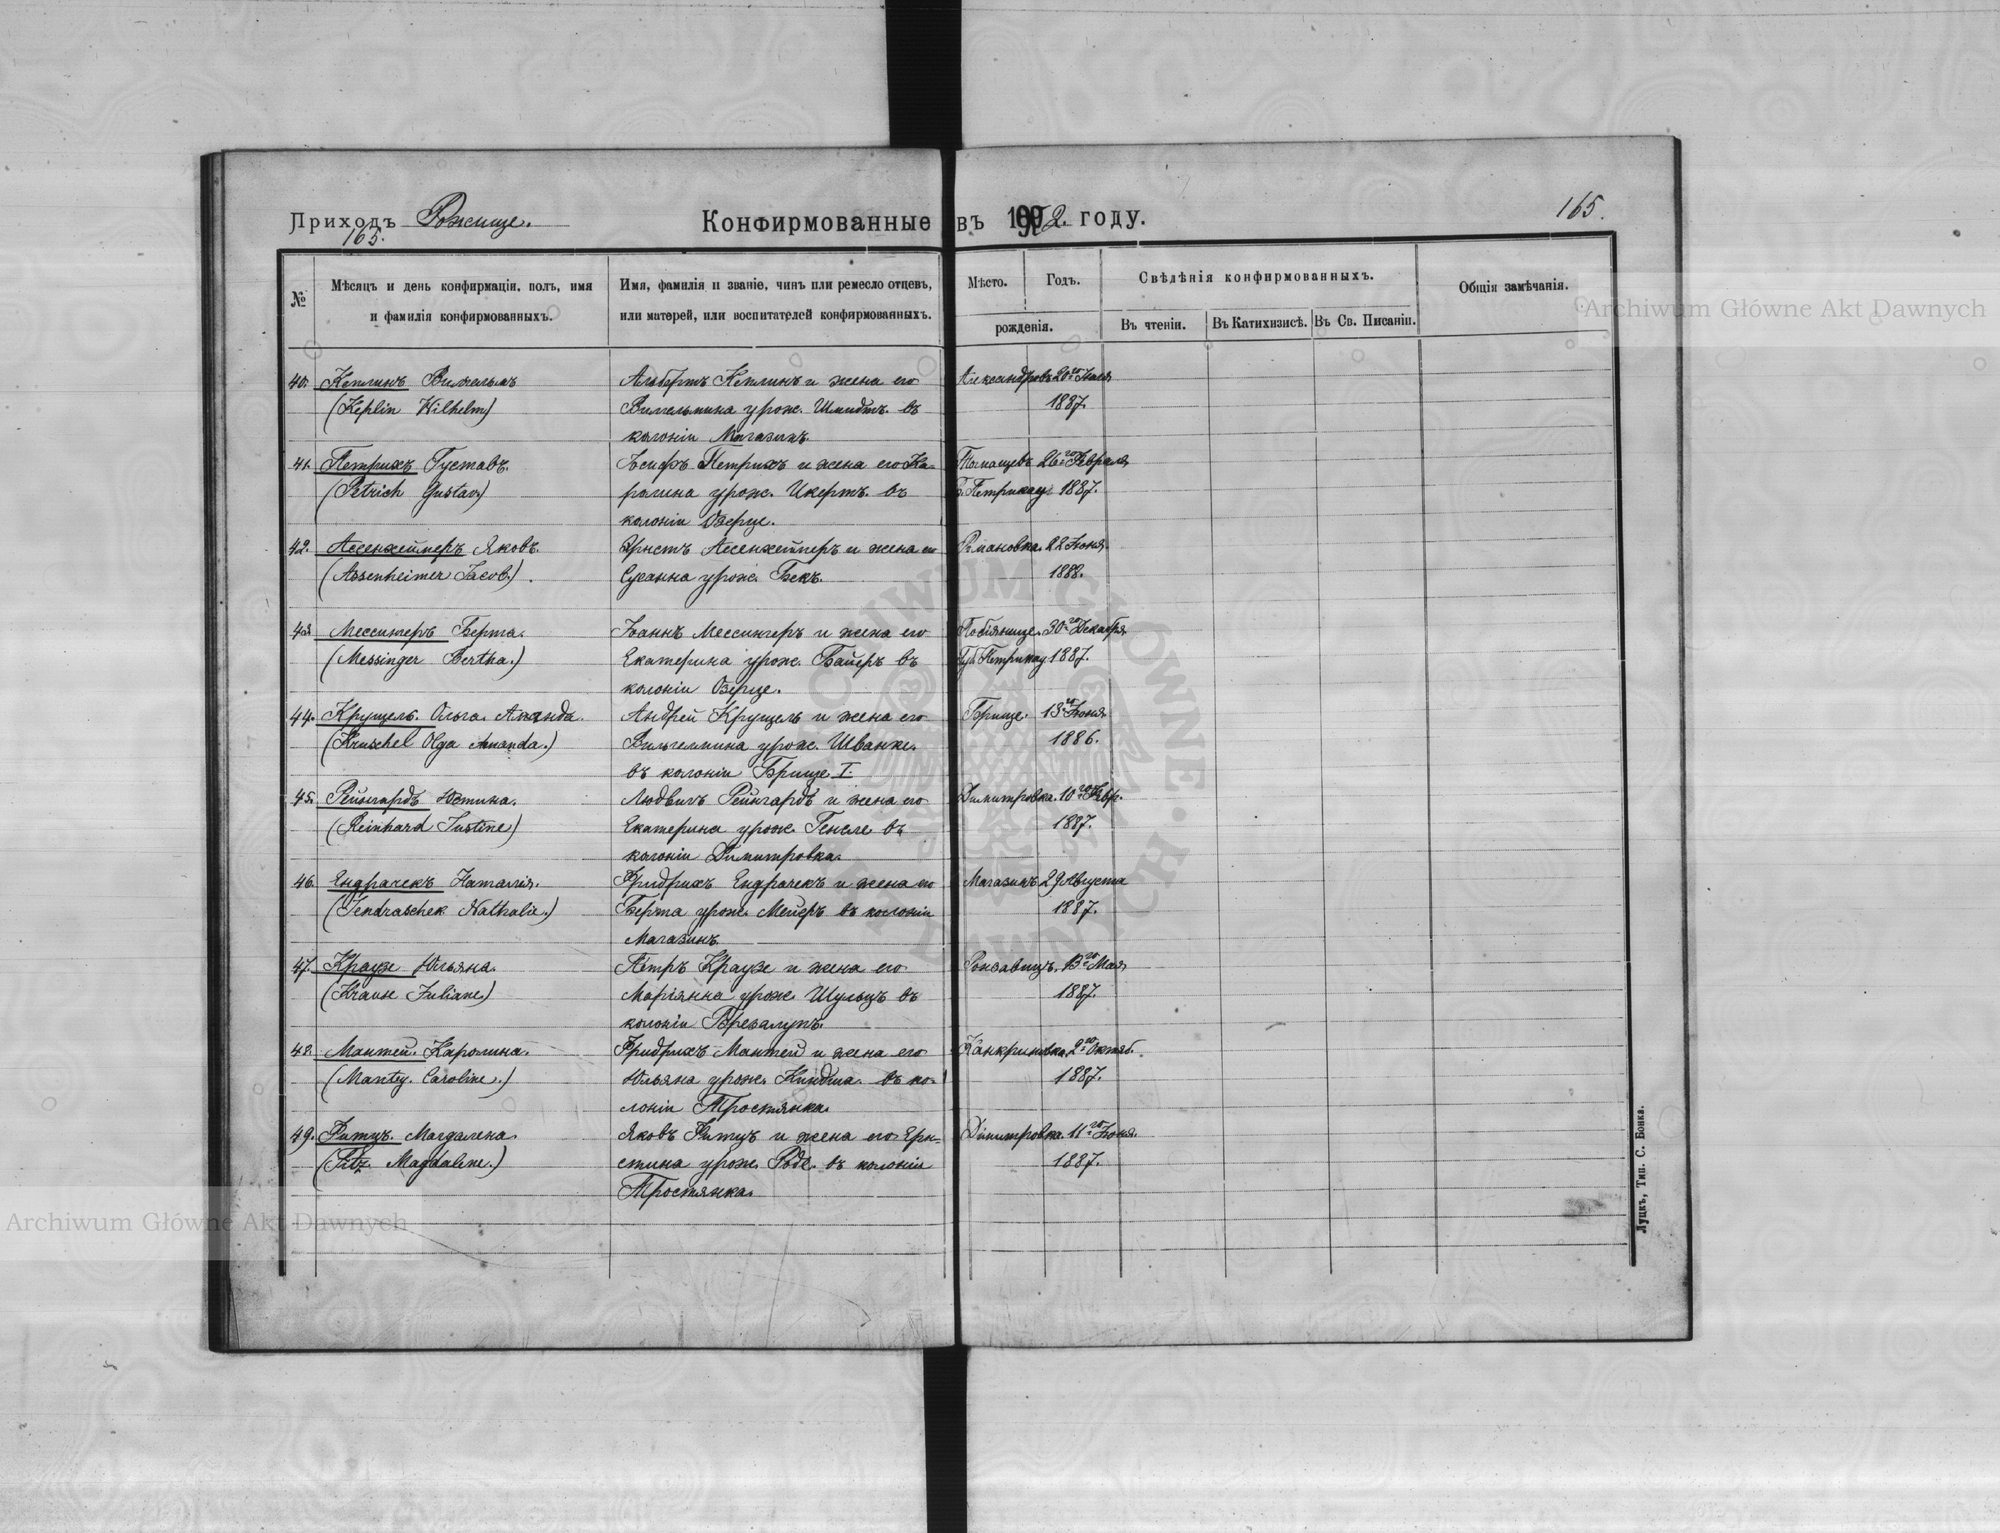 Приходъ Рожище.
165.
Конфирмованные въ 1902 году.
165.
№
Мѣсяцъ и день конфирмаціи, полъ, имя
и фамилія конфирмованныхъ.
Имя, фамилія и званіе, чинъ или ремесло отцевъ,
или матерей, или воспитателей конфирмованныхъ.
Мѣсто.
Годъ.
рожденія.
Свѣдѣнія конфирмованныхъ.
Въ чтеніи.
Въ Катихизисѣ.
Въ Св. Писаніи.
Общія замѣчанія.
40. Кеплинъ Вильгельмъ Альбертъ Кеплинъ и жена его Александровъ 20го
(Keplin Wilhelm) Вильгельмина урож. Шмидтъ. въ 1887.
колоніи Магазинъ.
41. Петрихъ Густавъ. Іосифъ Петрихъ и жена его Ка- 26го Февраля
(Petrich Gustav.) ролина урож. Икертъ. въ Петрикау 1887.
колоніи Озерце.
42. Ассенхеймеръ Яковъ. Эрнстъ Ассенхеймеръ и жена его Романовка. 22 Іюня.
(Assenheimer Jacob.) Сусанна урож. Бекъ. 1888.
43 Мессингеръ Берта. Іоаннъ Мессингеръ и жена его Пабіянице. 30го Декабря
(Messinger Bertha.) Екатерина урож. Байеръ въ Губ. Петрикау 1887.
колоніи Озерце.
44. Крушель. Ольга. Аманда. Андрей Крушель и жена его Брище. 13го Іюня.
(Kruschel Olga Amanda.) Вильгелмина урож. Шванке. 1886.
въ колоніи Брище I.
45. Рейнгардъ Юстина. Людвигъ Рейнгардъ и жена его Димитровка. 10го Февр.
(Reinhard Justine) Екатерина урож. Генсле въ 1887.
колоніи Димитровка.
46. Ендрачекъ Наталія. Фридрихъ Ендрачекъ и жена его Магазинъ 29 Августа
(Jendraschek Nathalie.) Берта урож. Мейеръ въ колоніи 1887.
Магазинъ.
47. Краузе Юльяна. Петръ Краузе и жена его 13го Мая
(Krause Juliane) Маріянна урож. Шульцъ въ 1887.
колоніи
48. Мантей. Каролина. Фридрихъ Мантей и жена его Канкриновка. 2го Октяб.
(Mantey. Caroline.) Юльяна урож. въ ко- 1887.
лоніи Тростянка.
49. Ритцъ. Магдалена. Яковъ Ритцъ и жена его Ерн- Димитровка. 11го Іюня.
(Ritz. Magdalene.) стина урож. Роде. въ колоніи 1887.
Тростянка.
Луцкъ, Тип. С. Бонка.
Archiwum Główne Akt Dawnych
Archiwum Główne Akt Dawnych
ARCHIWUM GŁÓWNE AKT DAWNYCH